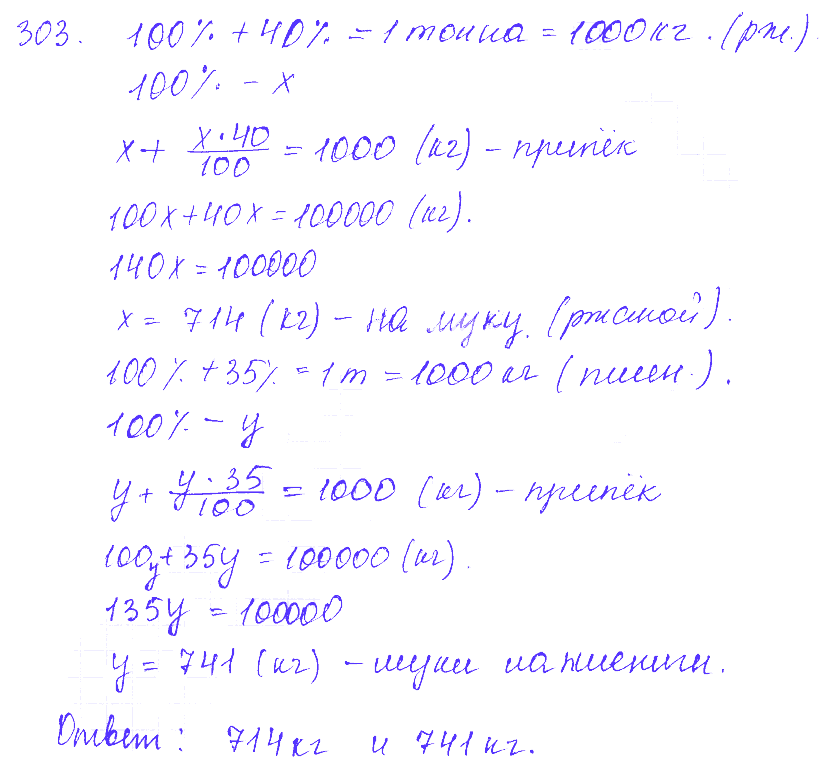 303. 100% + 40% = 1 тонна = 1000 кг. (рж.).
100% - x
x + x·40/100 = 1000 (кг) - припёк
100x + 40x = 100000 (кг).
140x = 100000
x = 714 (кг) - на муку. (ржаной).
100% + 35% = 1 т = 1000 кг (пшен.).
100% - y
y + y·35/100 = 1000 (кг) - припёк
100y + 35y = 100000 (кг).
135y = 100000
y = 741 (кг) - муки
Ответ: 714 кг и 741 кг.